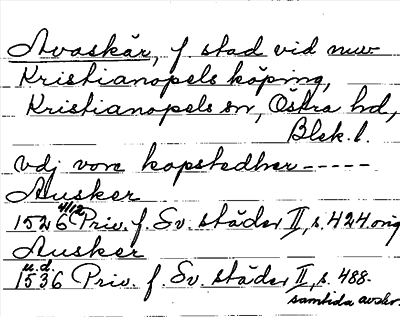 Avaskär, f stad vid nuv
Kristianopels köping,
Kristianopels sn, Östra hd,
Blek. l.
vdj vore kopstedher -----
Ausker
1526 4/12 Priv. f. Sv. städer II, s. 424. orig
Ausker
1536 u.d. Priv. f. Sv. städer II, s. 488.
samtida avskr.